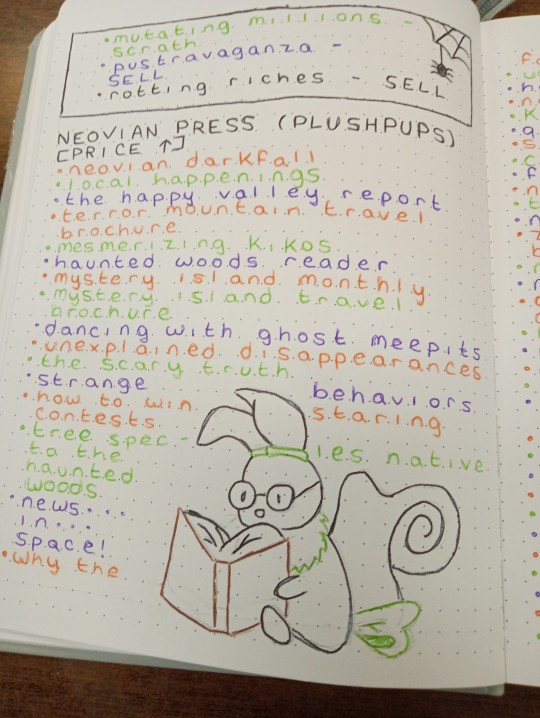 •mutating millions -
scrath
•pustravaganza -
SELL
•rotting riches - SELL
NEOVIAN PRESS (PLUSHPUPS)
[PRICE ↑]
•neovian darkfall
•local happenings
•the happy valley report
•terror mountain travel
brochure
•mesmerizing kikos
•haunted woods reader
•mystery island monthly
•mystery island travel
brochure
•dancing with ghost meepits
•unexplained disappearances
•the scary truth
•strange behaviors
•how to win staring
contests
•tree spec - ies native
to the
haunted
woods
•news...
in...
space!
•why the